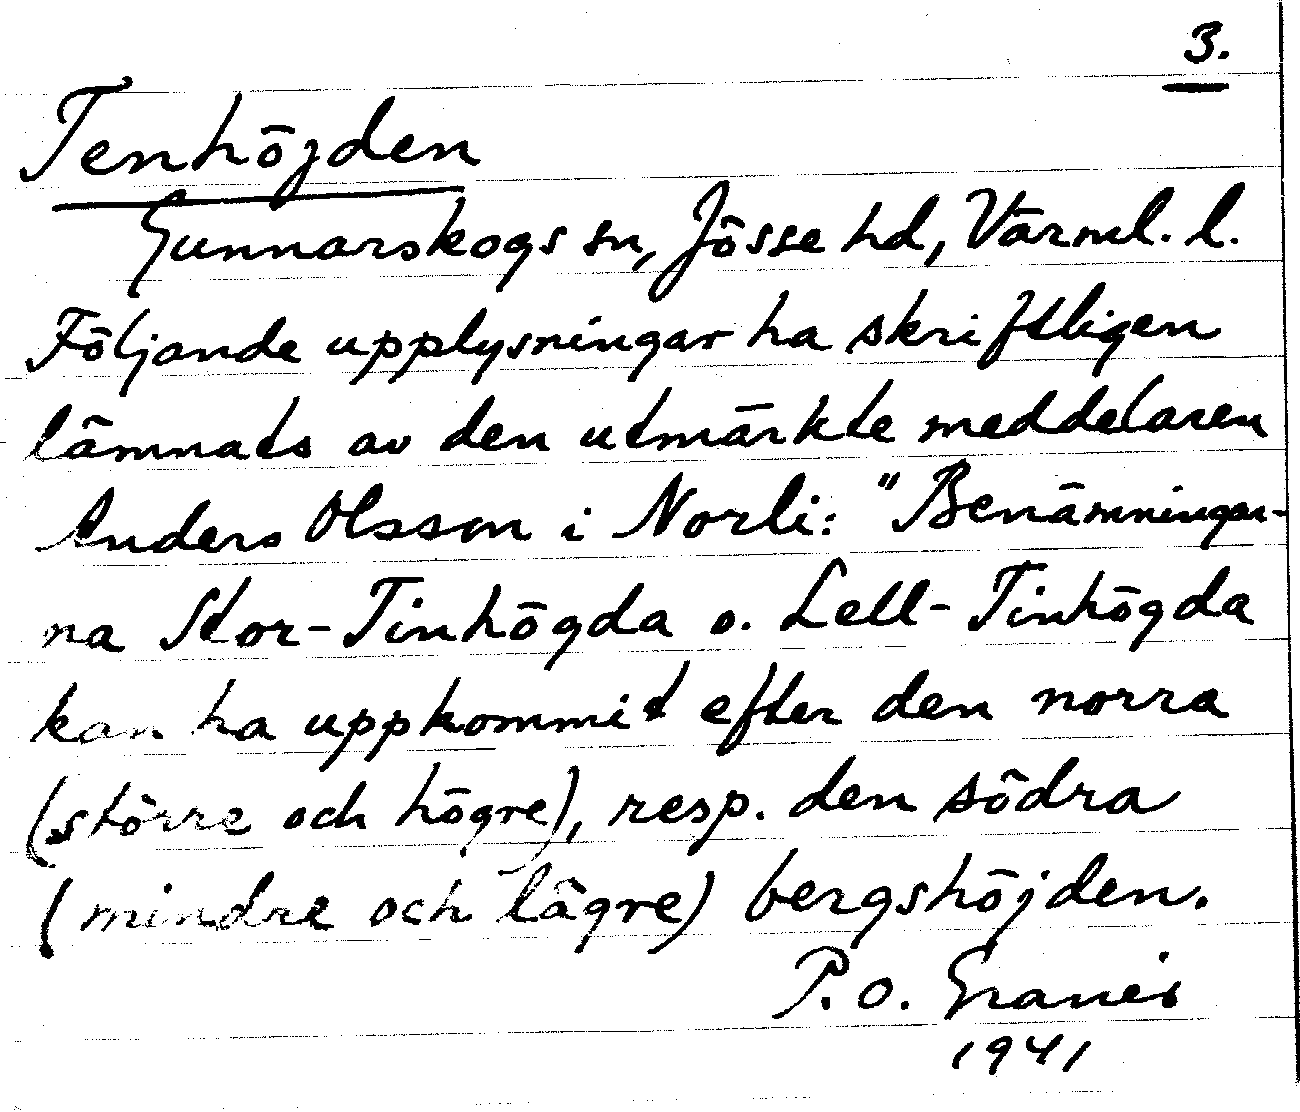 3.
Tenhöjden
Gunnarskogs sn, Jösse hd, Värml. l.
Följande upplysningar ha skriftligen
lämnats av den utmärkte meddelaren
Anders Olsson i Norli: "Benämningar-
na Stor-Tinhögda o. Lell-Tinhögda
kan ha uppkommit efter den norra
(större och högre), resp. den södra
(mindre och lägre) bergshöjden.
P. O. Granér
1941